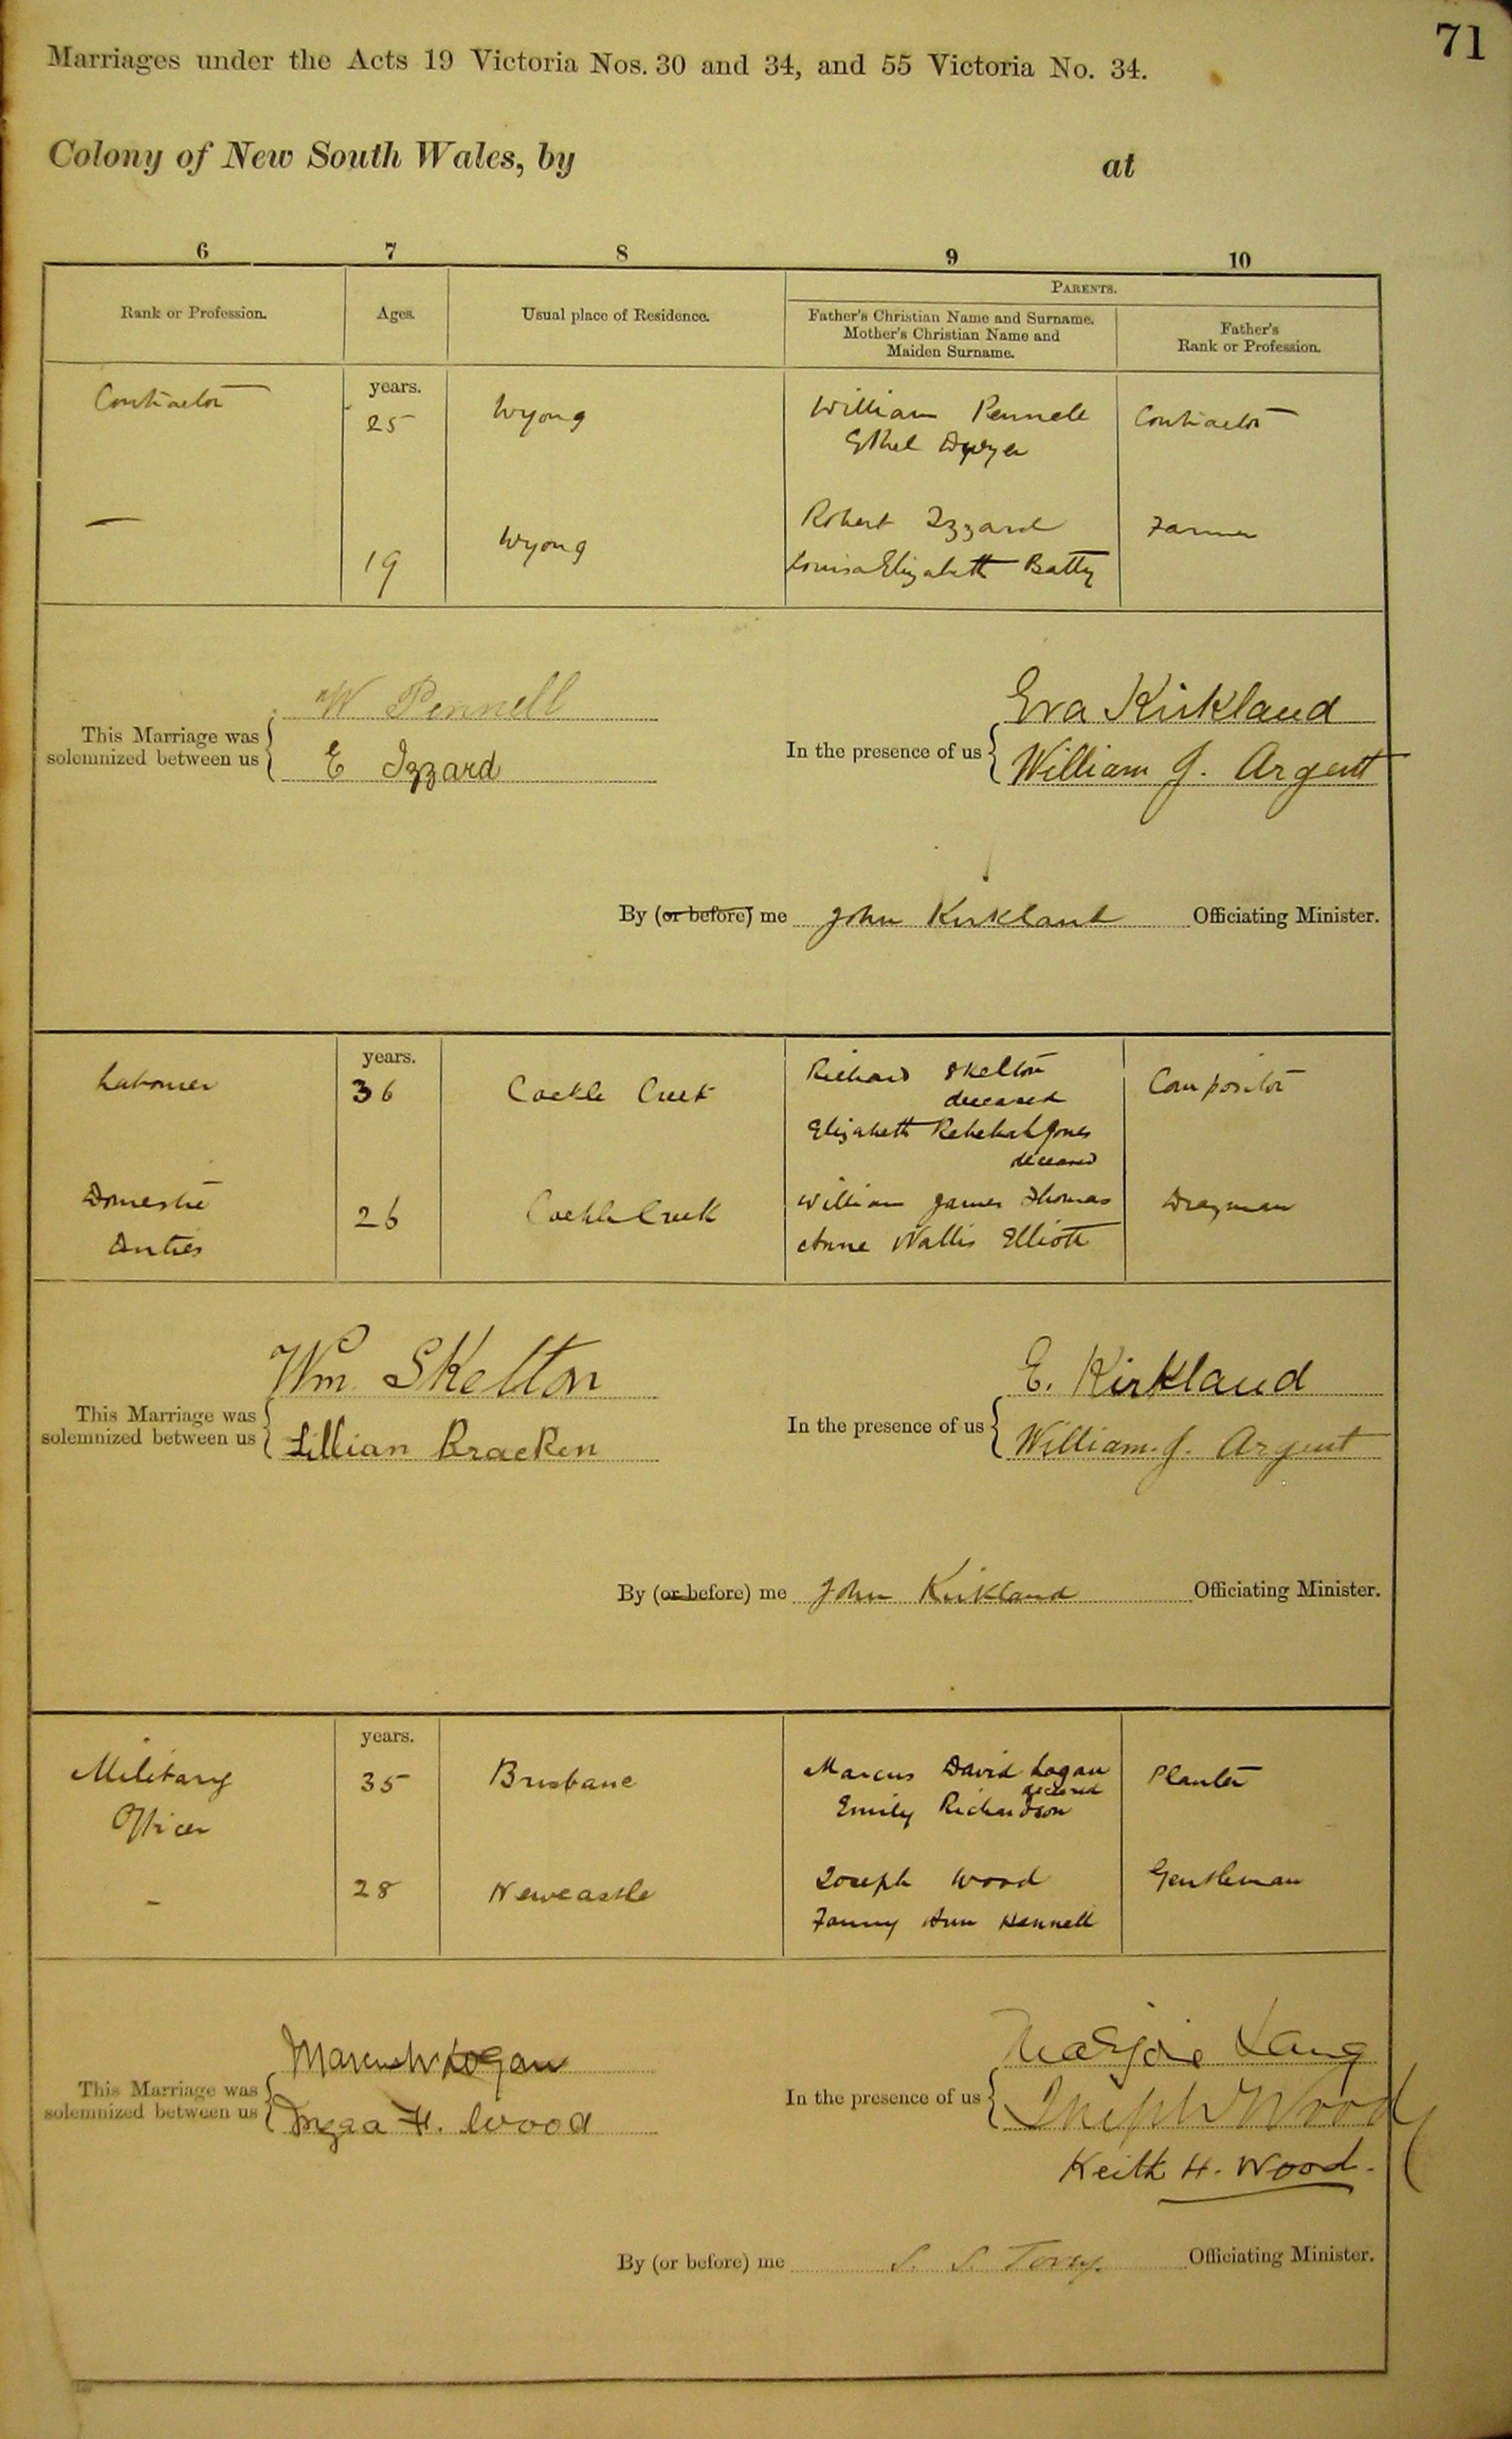 71
Marriages under the Acts 19 Victoria Nos. 30 and 34, and 55 Victoria No. 34.
Colony of New South Wales, by at
6 7 8 9 10
PARENTS.
Rank or Profession. Ages. Usual place of Residence. Father's Christian Name and Surname. Mother's Christian Name and Maiden Surname. Father's Rank or Profession.
years.
Contractor 25 Wyong William Pennell Contractor
Ethel Dwyer
— 19 Wyong Robert Izzard Farmer
Louisa Elizabeth Batty
W Pennell Eva Kirkland
This Marriage was solemnized between us In the presence of us
E Izzard William J. Argent
By (or before) me John Kirkland Officiating Minister.
years.
Labourer 36 Cockle Creek Richard Skelton Compositor
deceased
Elizabeth Rebekah Jones
deceased
Domestic 26 Cockle Creek William James Thomas Drayman
Duties Anne Wallis Elliott
Wm Skelton E. Kirkland
This Marriage was solemnized between us In the presence of us
Lillian Bracken William. J. Argent
By (or before) me John Kirkland Officiating Minister.
years.
Military 35 Brisbane Marcus David Logan Planter
deceased
Officer Emily Richardson
- 28 Newcastle Joseph Wood Gentleman
Fanny Ann Hannell
Marcus W Logan Marjorie Lang
This Marriage was solemnized between us In the presence of us
H. Wood Joseph Wood
Keith H. Wood.
By (or before) me Officiating Minister.